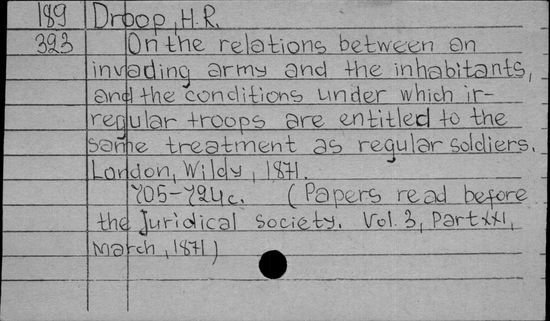 189 Droop, H.R.
323 On the relations between an
invading army and the inhabitants,
and the conditions under which ir-
regular troops are entitled to the
same treatment as regular soldiers.
London, Wildy, 1871.
705-724c. (Papers read before
the Juridical society. Vol. 3, Part XXI,
March, 1871)